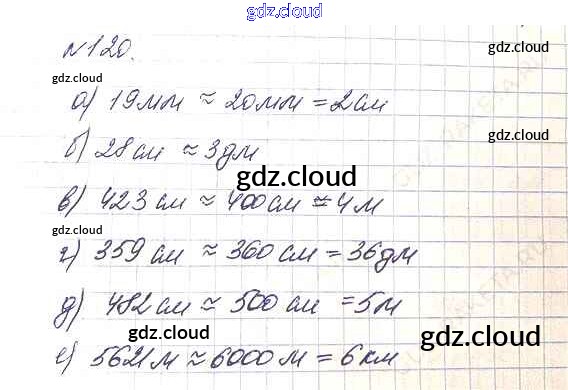 gdz.cloud
gdz.cloud
№120.
gdz.cloud gdz.cloud
а) 19мм ≈ 20мм = 2см
gdz.cloud
б) 28см ≈ 3дм
gdz.cloud
в) 423см ≈ 400см = 4м
gdz.cloud gdz.cloud
г) 359см ≈ 360см = 36дм
д) 482см ≈ 500см = 5м
gdz.cloud gdz.cloud
е) 5621м ≈ 6000м = 6км